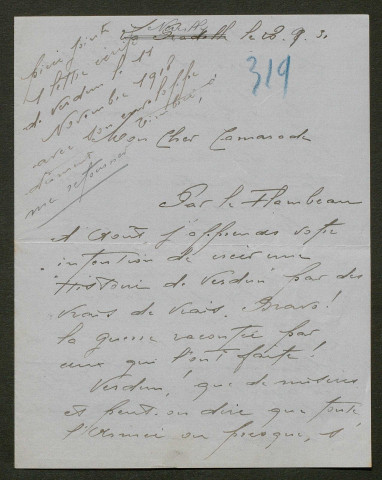 le 28. 9. 30
319
Pièce jointe
1 lettre écrite
de Verdun le 11
Novembre 1918
avec son enveloppe
me retourner
Mon Cher Camarade
Par le Flambeau
d'Août j'apprends votre
intention de créer une
Histoire de Verdun par des
vrais de vrais. Bravo!
la guerre racontée par
ceux qui l'ont faite!
Verdun, que de misères
et peut-on dire que toute
l'Armée ou presque, s'